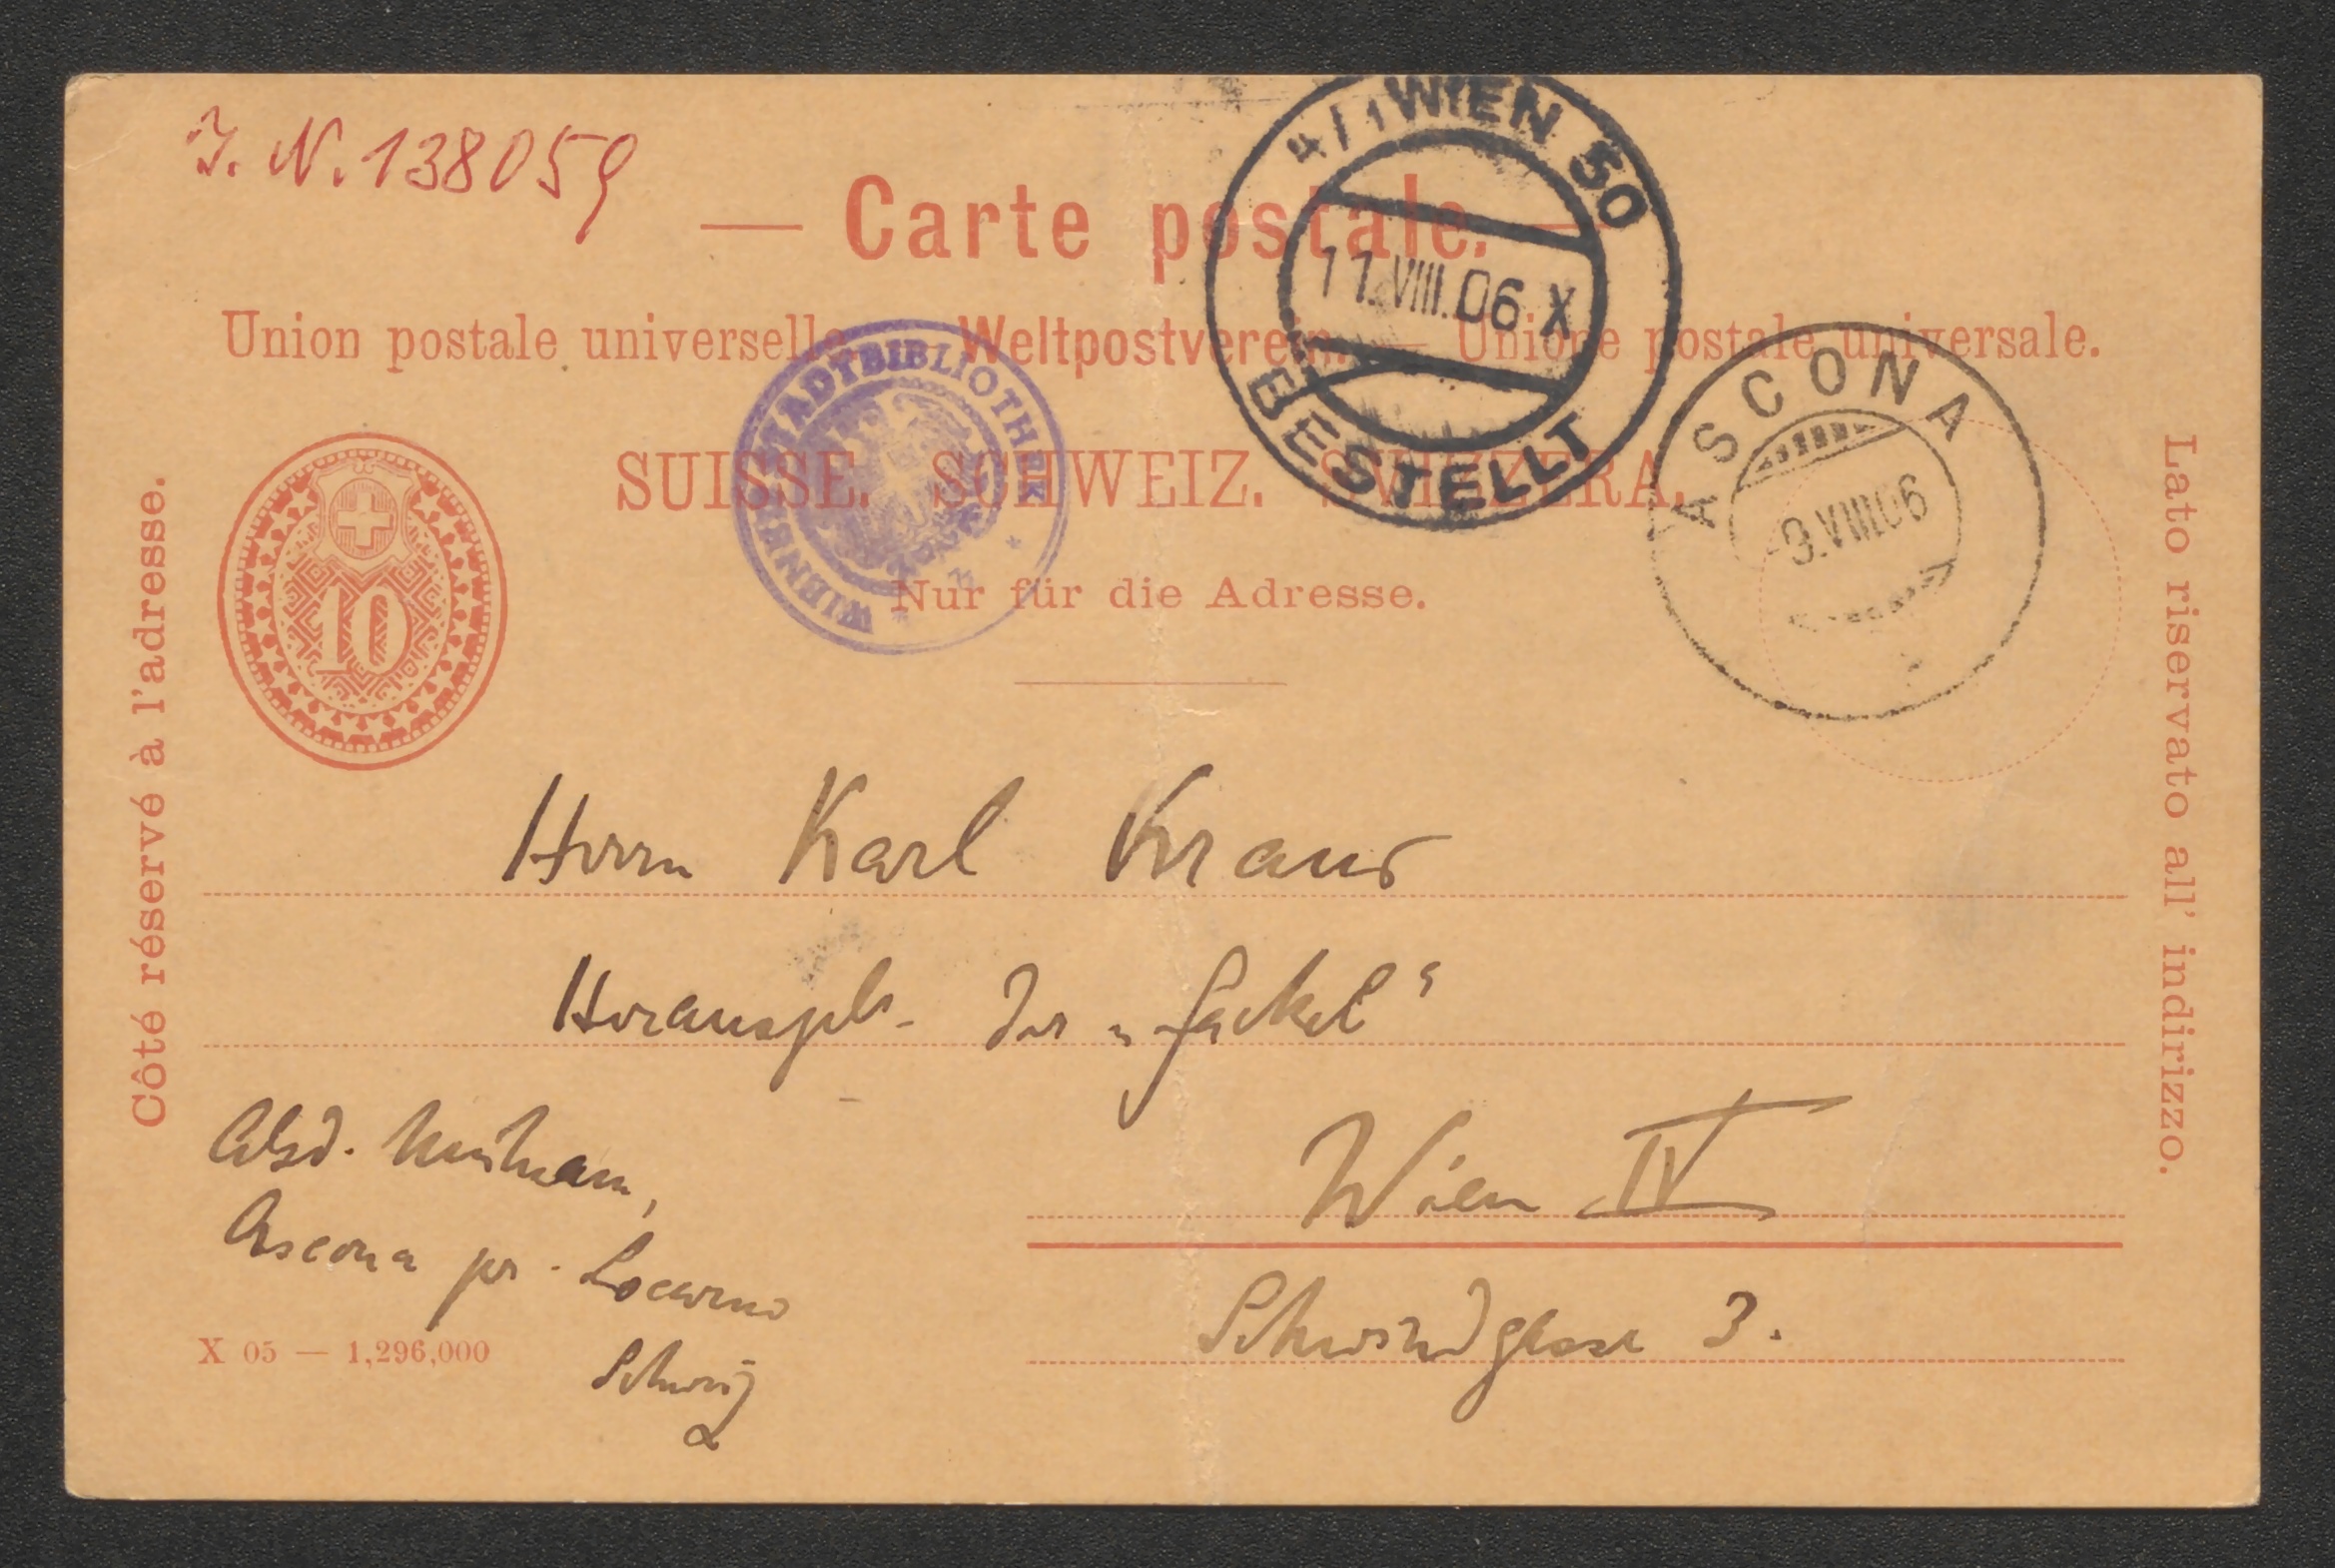 J. N. 138059
— Carte postale. —
Union postale universelle — Weltpostverein. — Unione postale universale.
SUISSE. SCHWEIZ. SVIZZERA.
Nur für die Adresse.
Côté réservé à l'adresse.
Lato riservato all' indirizzo.
10
WIENER STADTBIBLIOTHEK
4/1 WIEN 50
11.VIII.06 X
BESTELLT
ASCONA
9.VIII.06
Herrn Karl Kraus
Herausgeb. der „Fackel“
Wien IV
Schwindgasse 3.
Absd. Mühsam,
Ascona pr. Locarno
Schweiz
X 05 — 1,296,000